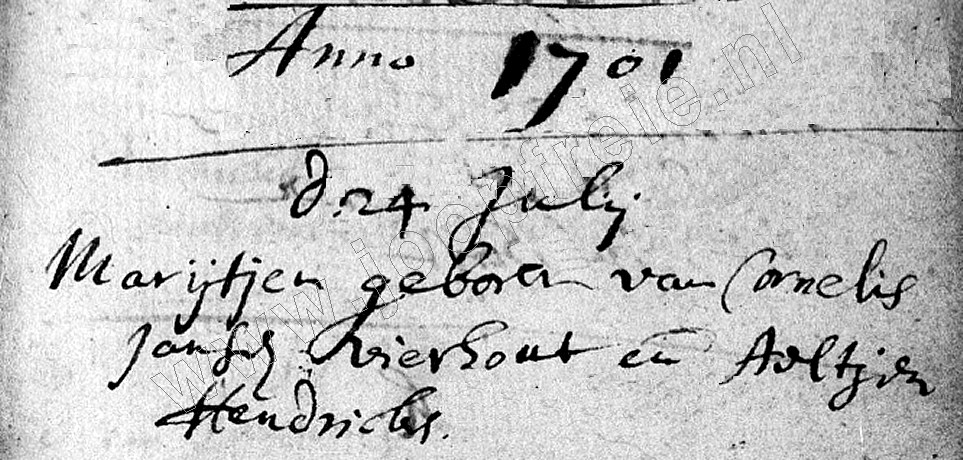 Anno 1701
d. 24 Julij
Marijtjen geboren van Cornelis
Jansz Vierhout en Aeltjen
Hendricks.
www.joopfreie.nl